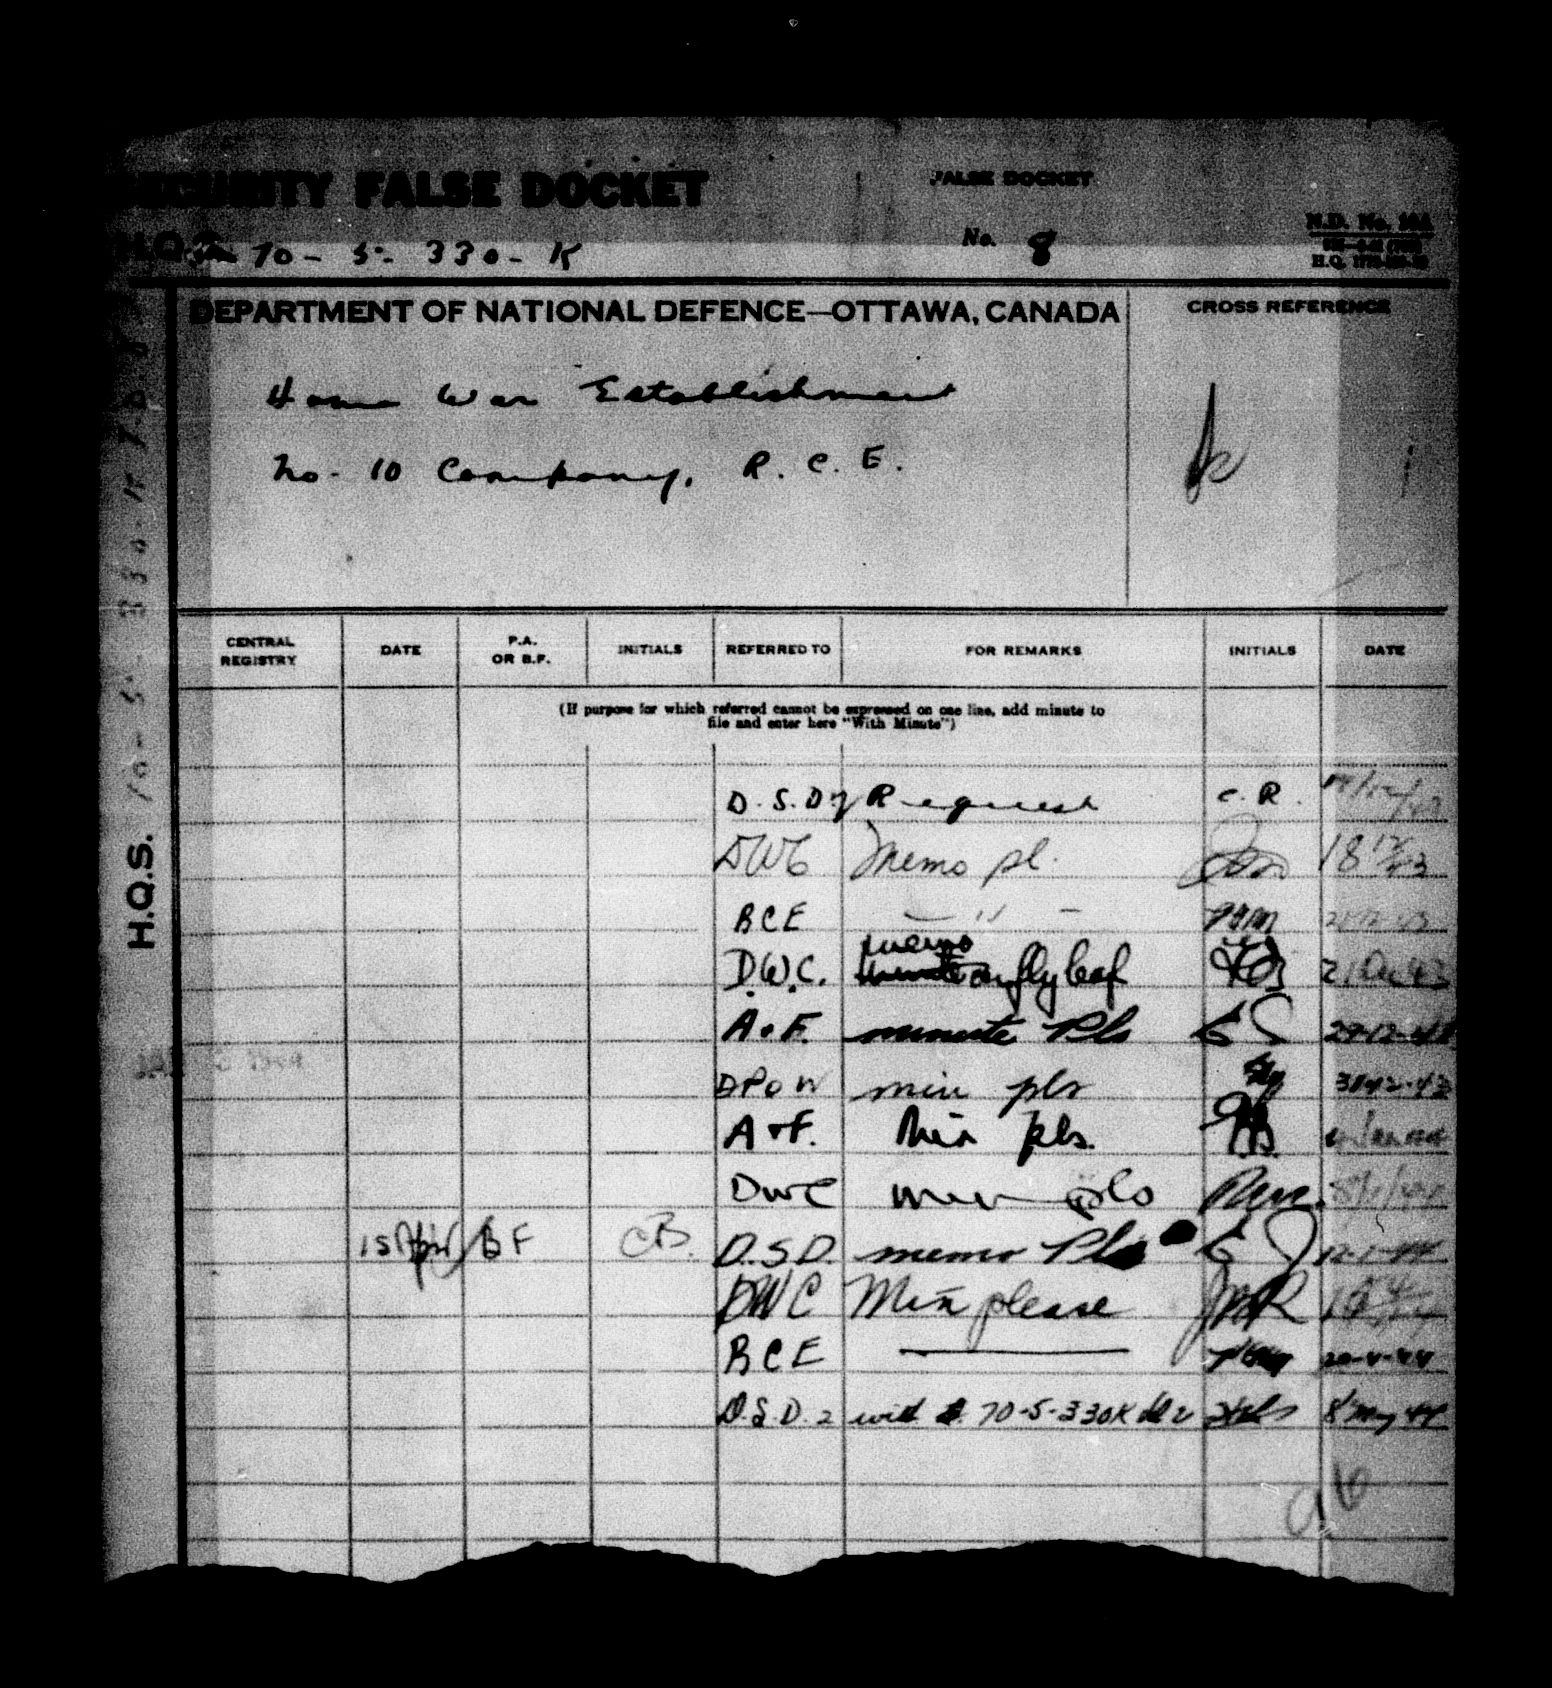 SECURITY FALSE DOCKET
FALSE DOCKET
H.Q.S. 70-5-330-K
No. 8
N.D. No.
H.Q.
DEPARTMENT OF NATIONAL DEFENCE—OTTAWA, CANADA
CROSS REFERENCE
Home War Establishment
No. 10 Company, R.C.E.
H.Q.S. 70-5-330-K
CENTRAL REGISTRY DATE P.A. OR B.F. INITIALS REFERRED TO FOR REMARKS INITIALS DATE
(If purpose for which referred cannot be expressed on one line, add minute to
file and enter here "With Minute")
D.S.D. Request C.R.
DWC Memo pl. 18 12/43
BCE — " —
D.W.C. memo on fly leaf 21 Dec 43
A.&F. minute Pls
DPOW min pls
A&F. Min pls.
DWC min pls
BF CB. D.S.D. memo Pls 12-1-44
DWC Min please
BCE — 20-4-44
D.S.D. 2 with 70-5-330K 8 May 44